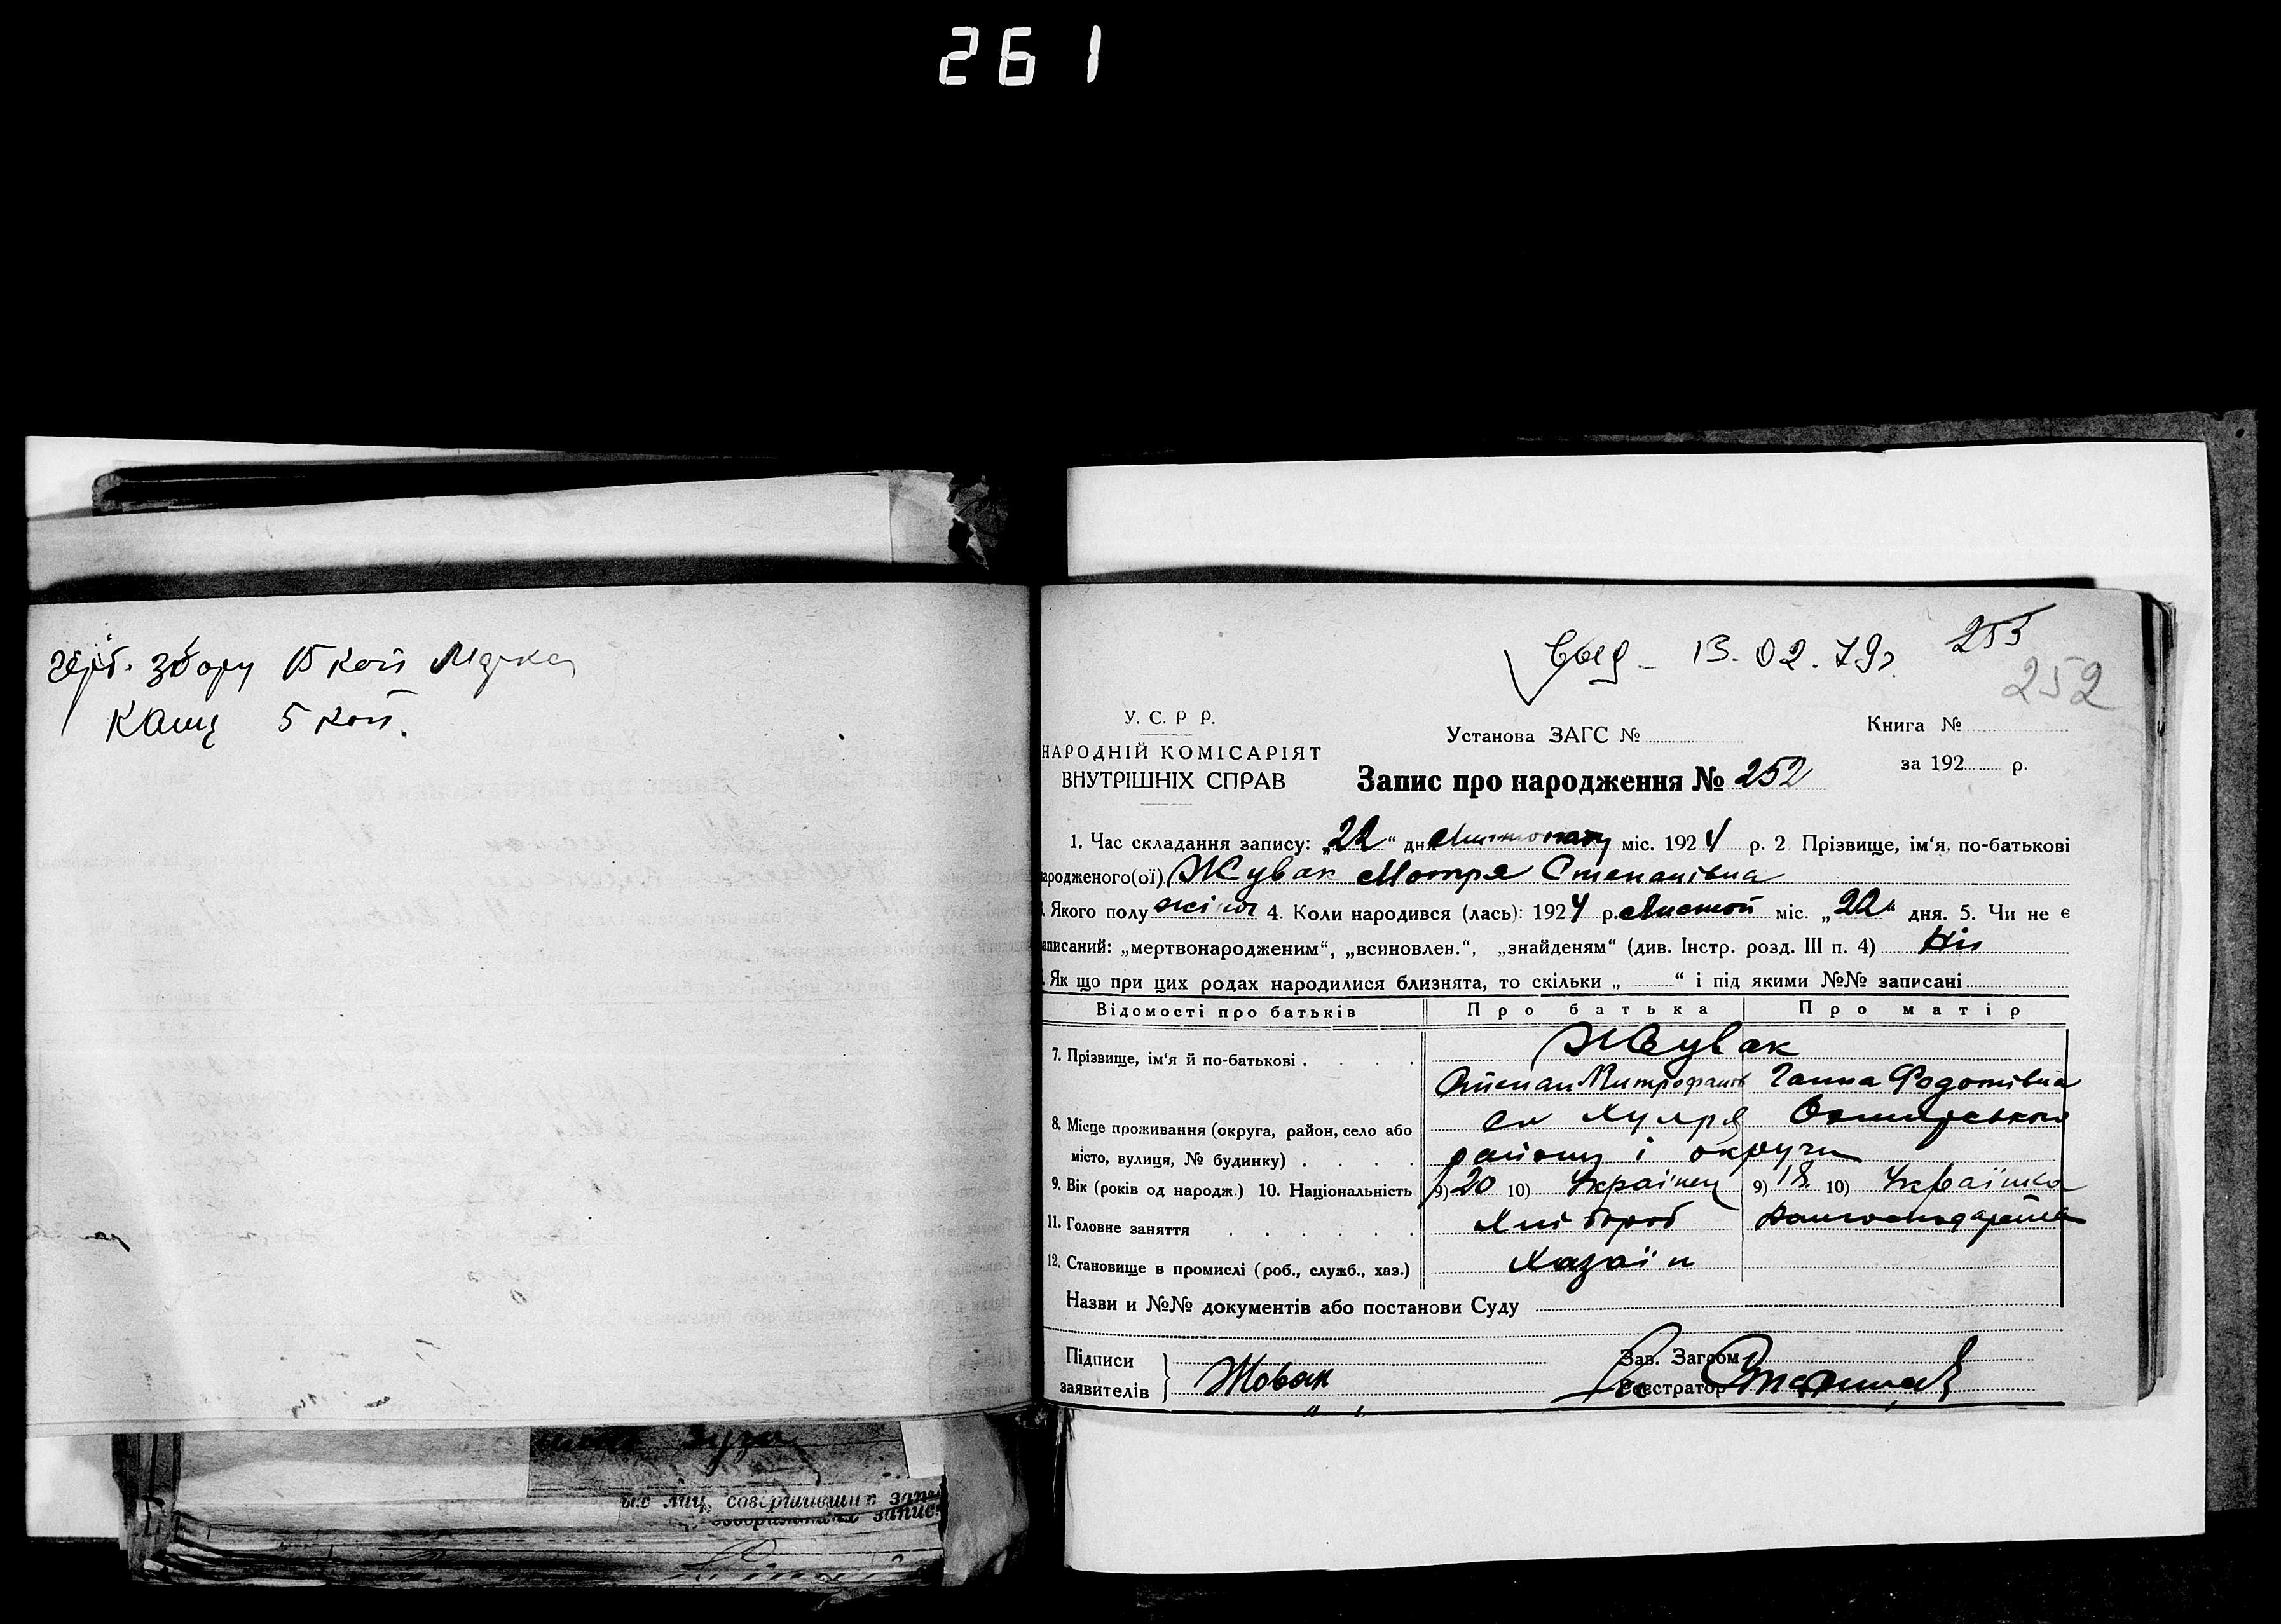 261
герб. збору 15 коп Марка
Канц 5 коп.
Выд - 13.02.79г. 253
252
У. С. Р Р.
НАРОДНІЙ КОМІСАРІЯТ
ВНУТРІШНІХ СПРАВ
Установа ЗАГС №
Книга №
за 192 р.
Запис про народження № 252
1. Час складання запису: „22“ дня Листопаду міс. 1924 р. 2 Прізвище, ім‘я, по-батькові
ародженого(ої) Жувак Мотря Степанівна
Якого полу жіноч 4. Коли народився (лась): 1924 р. Листоп міс. „22“ дня. 5. Чи не є
аписаний: „мертвонародженим“, „всиновлен.“, „знайденям“ (див. Інстр. розд. III п. 4) Ні
Як що при цих родах народилися близнята, то скільки „ “ і під якими №№ записані
Відомості про батьків Про батька Про матір
7. Прізвище, ім‘я й по-батькові Жувак
Степан Митрофанов Ганна Федотівна
8. Місце проживання (округа, район, село або
місто, вулиця, № будинку) району і округи
9. Вік (років од народж.) 10. Національність 9) 20 10) Українец 9) 18 10) Українка
11. Головне заняття Хлібороб Домогосподарка
12. Становище в промислі (роб., служб., хаз.) Хазяїн
Назви и №№ документів або постанови Суду
Підписи
заявителів Жовак
Зав. Загсом
Реєстратор
совершивших запи